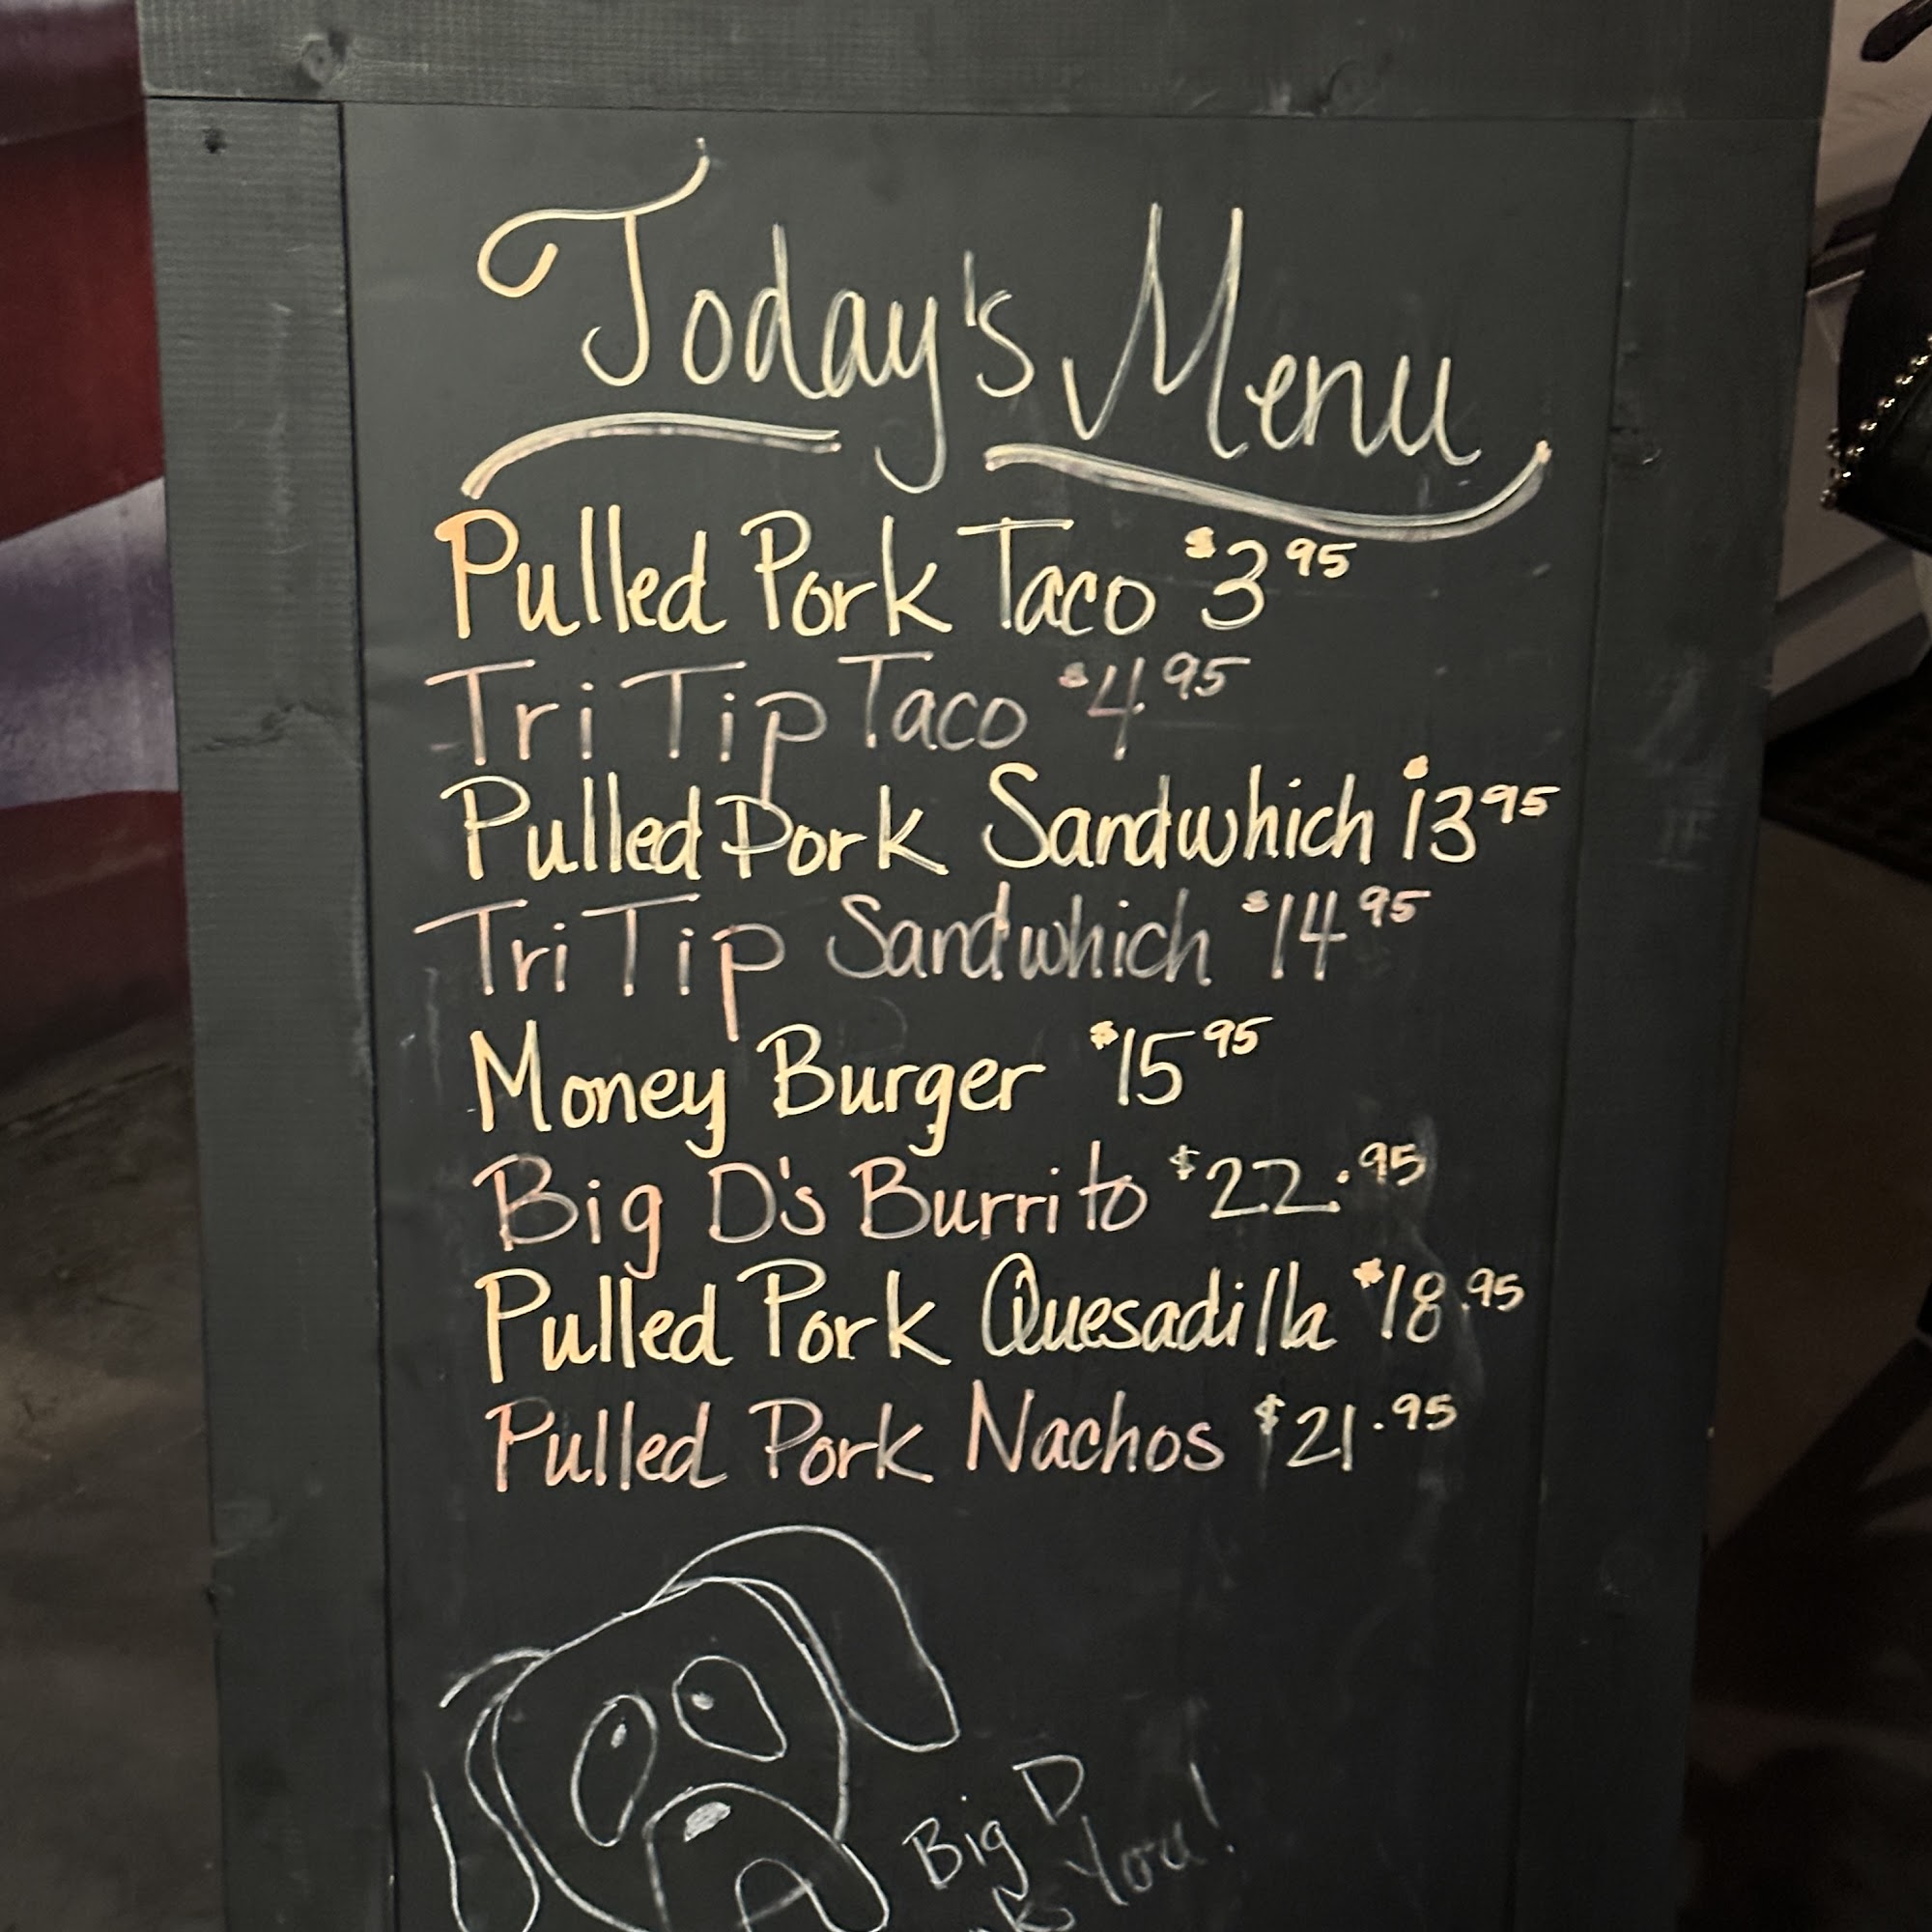 Today's Menu
Pulled Pork Taco $3 95
Tri Tip Taco $4 95
Pulled Pork Sandwhich $13 95
Tri Tip Sandwhich $14 95
Money Burger $15 95
Big D's Burrito $22.95
Pulled Pork Quesadilla $18.95
Pulled Pork Nachos $21.95
Big D
You!